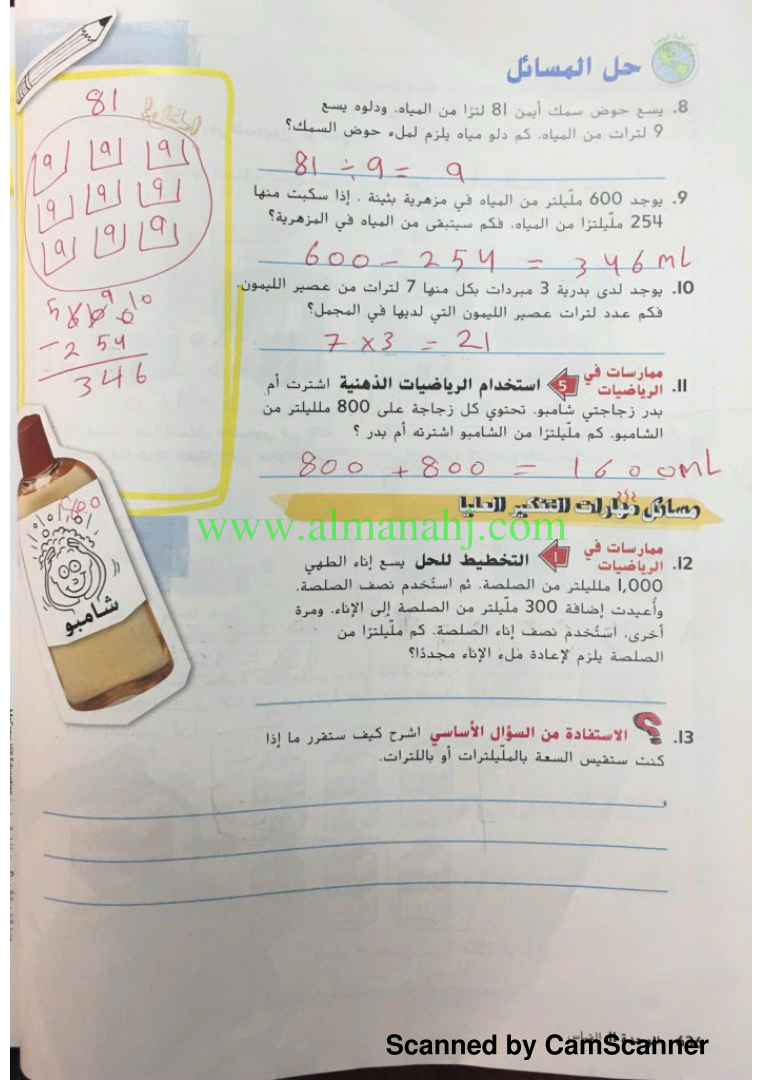 حل المسائل
8. يسع حوض سمك أيمن 81 لترًا من المياه. ودلوه يسع
9 لترات من المياه. كم دلو مياه يلزم لملء حوض السمك؟
81 ÷ 9 = 9
9. يوجد 600 ملّيلتر من المياه في مزهرية بثينة . إذا سكبت منها
254 ملّيلترًا من المياه. فكم سيتبقى من المياه في المزهرية؟
600 - 254 = 346 mL
10. يوجد لدى بدرية 3 مبردات بكل منها 7 لترات من عصير الليمون.
فكم عدد لترات عصير الليمون التي لديها في المجمل؟
7 x 3 = 21
11. ممارسات في الرياضيات 5 استخدام الرياضيات الذهنية اشترت أم
بدر زجاجتي شامبو. تحتوي كل زجاجة على 800 ملليلتر من
الشامبو. كم ملّيلترًا من الشامبو اشترته أم بدر ؟
800 + 800 = 1600 mL
مسائل مهارات التفكير العليا
www.almanahj.com
12. ممارسات في الرياضيات 1 التخطيط للحل يسع إناء الطهي
1,000 ملليلتر من الصلصة. ثم استُخدم نصف الصلصة.
وأُعيدت إضافة 300 ملّيلتر من الصلصة إلى الإناء. ومرة
أخرى. استُخدم نصف إناء الصلصة. كم ملّيلترًا من
الصلصة يلزم لإعادة ملء الإناء مجددًا؟
13. الاستفادة من السؤال الأساسي اشرح كيف ستقرر ما إذا
كنت ستقيس السعة بالملّيلترات أو باللترات.
81
9 9 9
9 9 9
9 9 9
5 9 10
6 10 0
- 2 5 4
3 4 6
شامبو
Scanned by CamScanner